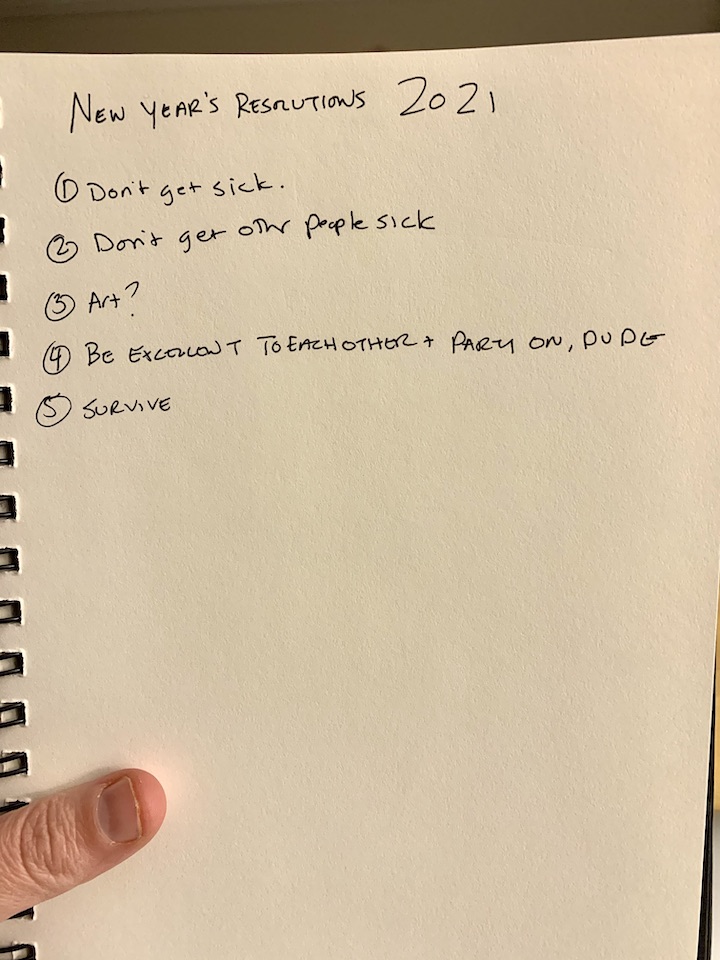 New Year's Resolutions 2021
① Don't get sick.
② Don't get other people sick
③ Art?
④ BE EXCELLENT TO EACH OTHER + PARTY ON, DUDE
⑤ SURVIVE